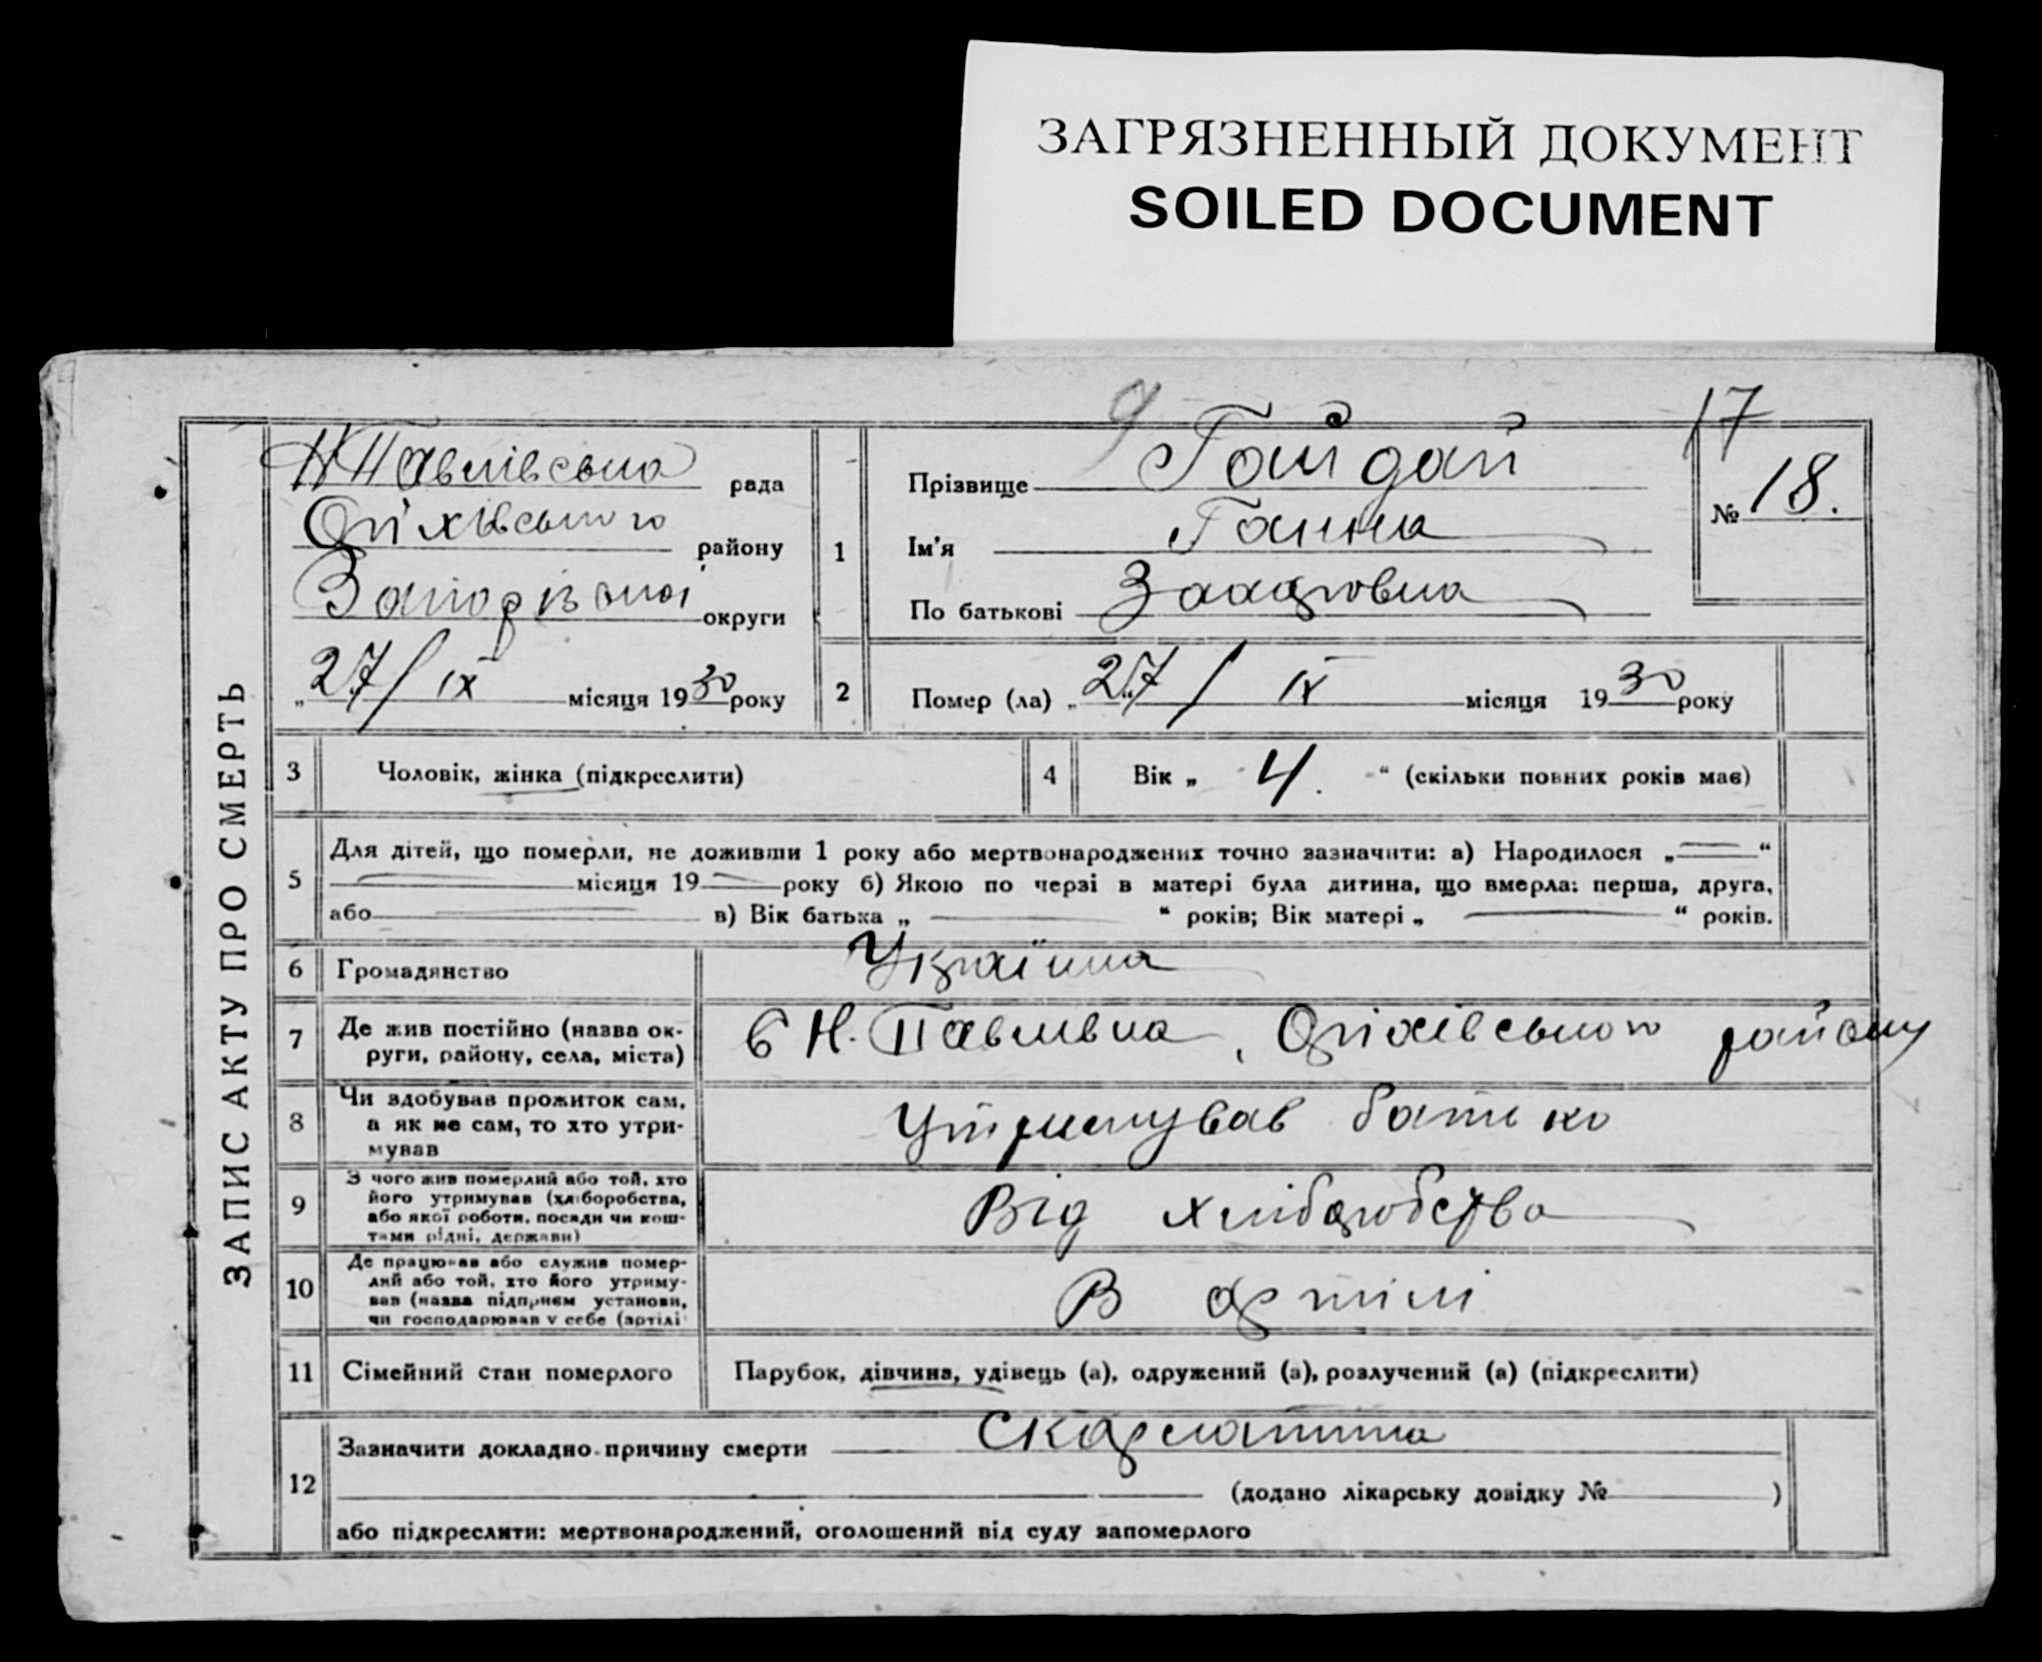 ЗАГРЯЗНЕННЫЙ ДОКУМЕНТ
SOILED DOCUMENT
17
ЗАПИС АКТУ ПРО СМЕРТЬ
Н Павлівська рада
Оріхівського району
Запорізької округи
„27/IX місяця 1930 року
1
Прізвище Гайдай
Ім'я Ганна
По батькові Захаровна
№ 18.
2 Помер (ла) „27/IX місяця 1930 року
3 Чоловік, жінка (підкреслити)
4 Вік „ 4. “ (скільки повних років має)
5 Для дітей, що померли, не доживши 1 року або мертвонароджених точно зазначити: а) Народилося „ — “
місяця 19 — року б) Якою по черзі в матері була дитина, що вмерла: перша, друга,
або — в) Вік батька „ — “ років; Вік матері „ — “ років.
6 Громадянство Українка
7 Де жив постійно (назва ок-
руги, району, села, міста)
Н. Павлівка, Оріхівського району
8 Чи здобував прожиток сам,
а як не сам, то хто утри-
мував
Утримував батько
9 З чого жив померлий або той, хто
його утримував (хліборобства,
або якої роботи, посади чи кош-
тами рідні, держави)
Від хліборобства
10 Де працював або служив помер-
лий або той, хто його утриму-
вав (назва підприєм установи,
чи господарював у себе (артілі
В артілі
11 Сімейний стан померлого Парубок, дівчина, удівець (а), одружений (а), розлучений (а) (підкреслити)
12 Зазначити докладно причину смерти Скарлатина
(додано лікарську довідку № )
або підкреслити: мертвонароджений, оголошений від суду запомерлого